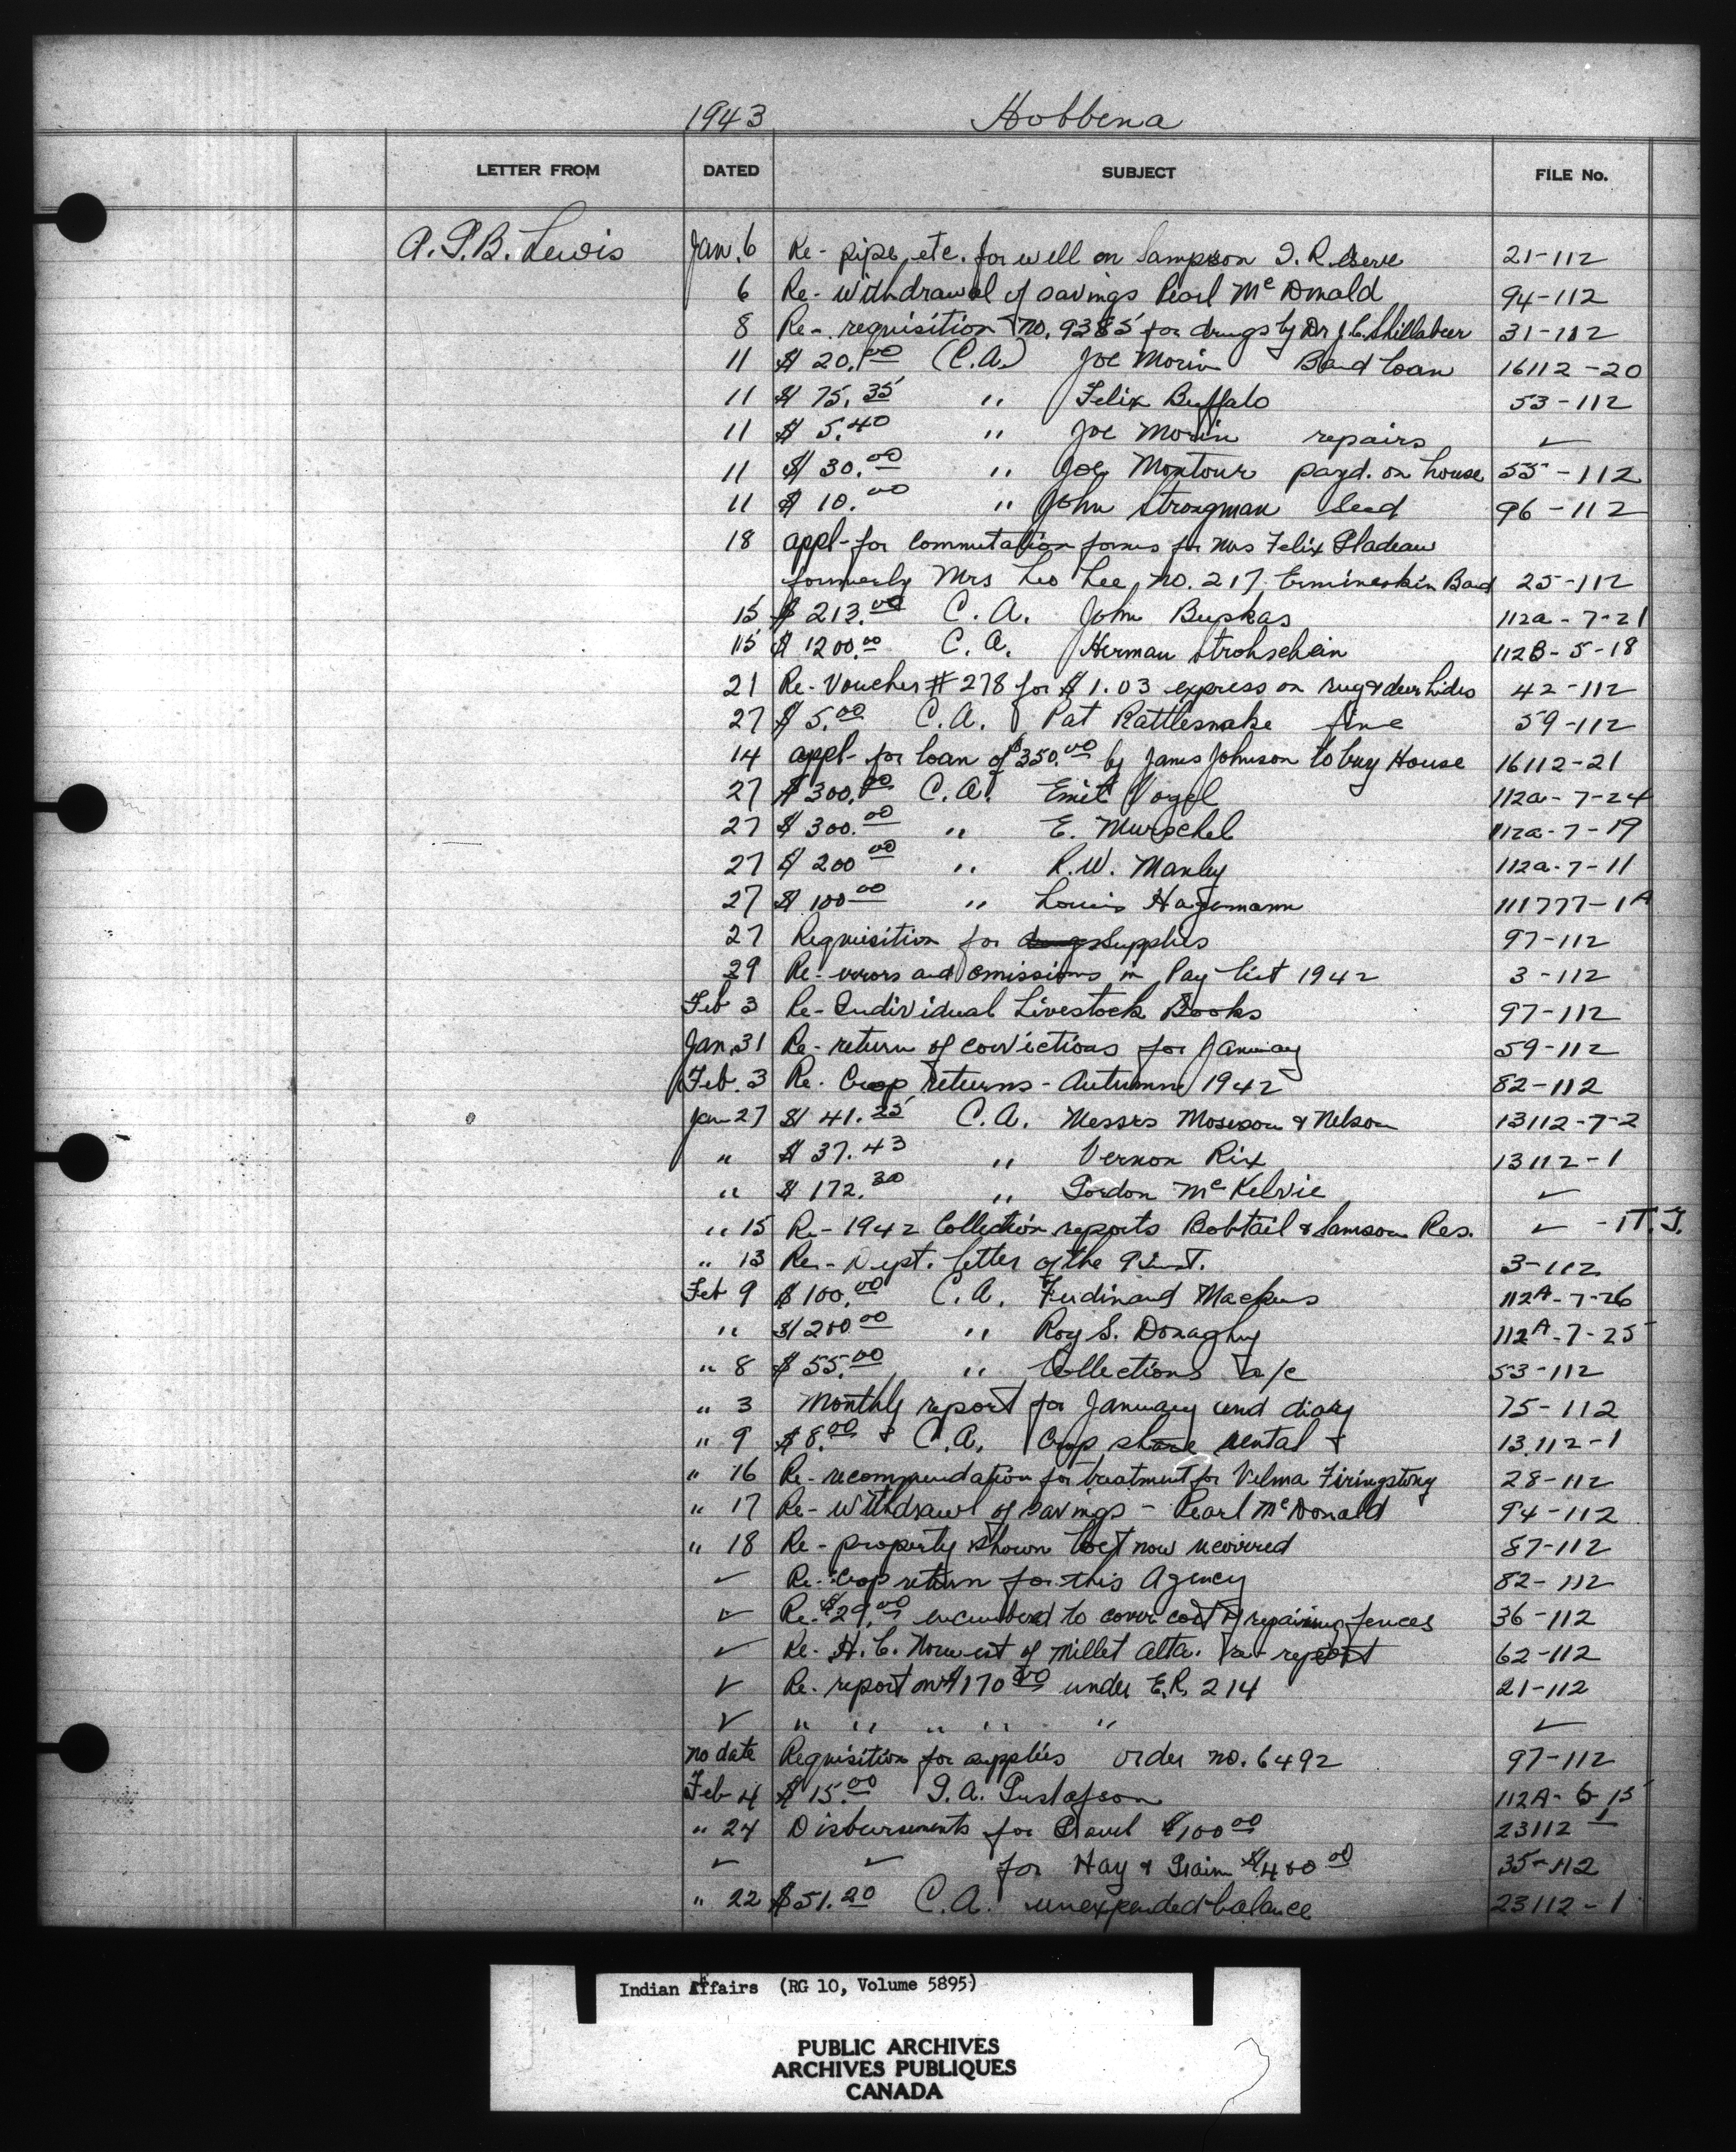 1943 Hobbema
LETTER FROM DATED SUBJECT FILE No.
A.G.B. Lewis Jan. 6 Re - pipe, etc. for well on Sampson I. Reserve 21-112
6 Re - withdrawal of savings Pearl McDonald 94-112
8 Re - requisition no. 9385 for drugs by Dr J.C. Shillabeer 31-112
11 $ 20.00 (C.A.) Joe Morin Band loan 16112-20
11 $ 75.35 " Felix Buffalo 53-112
11 $ 5.40 " Joe Morin repairs ✓
11 $ 30.00 " Joe Montour payd. on house 55-112
11 $ 10.00 " John Strongman Seed 96-112
18 appl- for commutation forms for Mrs Felix Gladeau
formerly Mrs Leo Lee, no. 217 Ermineskin Band 25-112
15 $ 213.00 C.A. John Bupkas 112a-7-21
15 $ 1200.00 C.A. Herman Strohschein 112B-5-18
21 Re - Voucher # 278 for $1.03 express on rug & deer hides 42-112
27 $ 5.00 C.A. Pat Rattlesnake fine 59-112
14 appl- for loan of $350.00 by James Johnson to buy House 16112-21
27 $ 300.00 C.A. Emil Vogel 112a-7-24
27 $ 300.00 " E. Murschel 112a-7-19
27 $ 200.00 " R.W. Manley 112a-7-11
27 $ 100.00 " Louis Hagemann 111777-1A
27 Requisition for drugs Supplies 97-112
29 Re - errors and omissions in Pay list 1942 3-112
Feb 3 Re - Individual Livestock Books 97-112
Jan. 31 Re - return of convictions for January 59-112
Feb. 3 Re. Crop returns - Autumn 1942 82-112
Jan 27 $ 41.25 C.A. Messrs Moseson & Nelson 13112-7-2
" $ 37.43 " Vernon Rix 13112-1
" $ 172.30 " Gordon McKelvie ✓
" 15 Re - 1942 Collection reports Bobtail & Samson Res. ✓ - 1T.J.
" 13 Re - Dept. letter of the 9 inst. 3-112
Feb 9 $ 100.00 C.A. Ferdinand Mackus 112A-7-26
" $ 200.00 " Roy S. Donaghy 112A-7-25
" 8 $ 55.00 " Collections a/c 53-112
" 3 Monthly report for January and diary 75-112
" 9 $ 8.00 & C.A. Crop share rental & 13,112-1
" 16 Re - recommendation for treatment for Velma Firingstony 28-112
" 17 Re - withdrawl of savings - Pearl McDonald 94-112
" 18 Re - property shown lost now recovered 87-112
✓ Re - Crop return for this Agency 82-112
✓ Re - $29.00 encumbered to cover cost of repairing fences 36-112
✓ Re - H.C. Norwest of Millet Alta. report 62-112
✓ Re - report on $170.00 under E.R. 214 21-112
✓ " " " " " ✓
no date Requisition for supplies order no. 6492 97-112
Feb 4 $ 15.00 G.A. Gustafson 112A-6-15
" 24 Disbursements for Travel $100.00 23112-1
✓ ✓ for Hay & Grain $400.00 35-112
" 22 $51.20 C.A. unexpended balance 23112-1
Indian Affairs (RG 10, Volume 5895)
PUBLIC ARCHIVES
ARCHIVES PUBLIQUES
CANADA